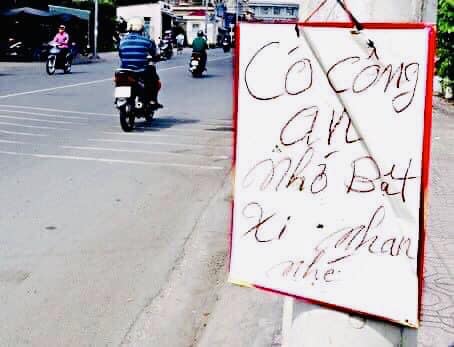 Có Công
an
nhớ Bật
xi nhan
nhé